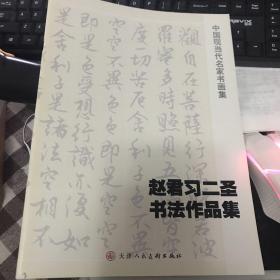 中国现当代名家书画集
观自在菩萨行深般若波
罗蜜多时照见五
度一切苦厄舍利子色
不异空空不异色色
即是空空即是色受想行识亦复如
是舍利子是诸法空相
赵君习二圣
书法作品集
天津人民美术出版社